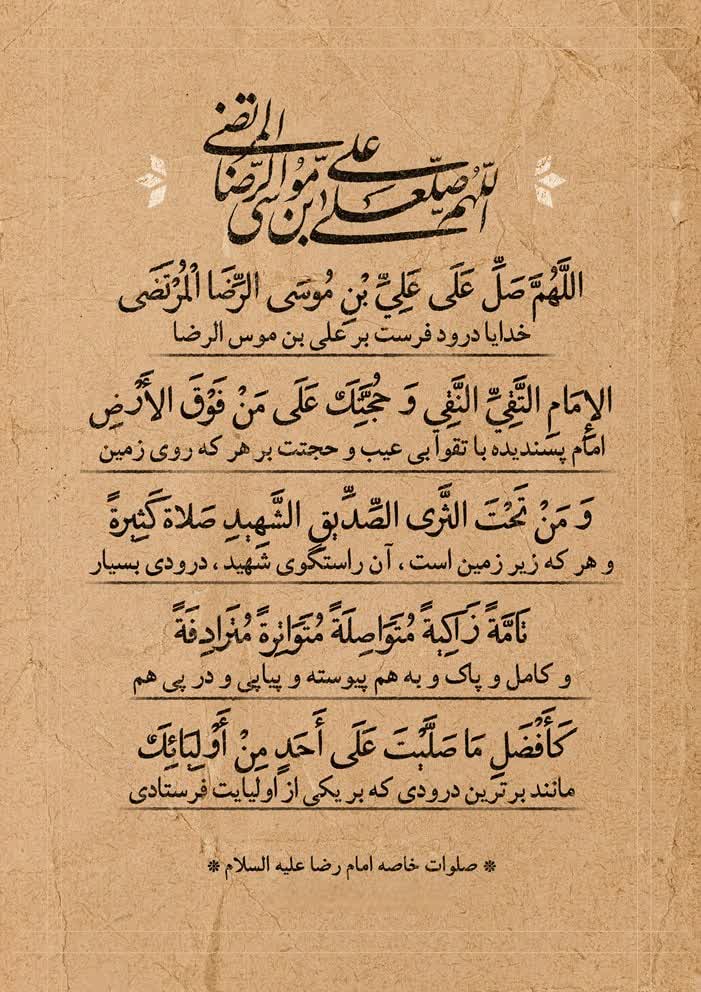 اللّهم صلّ علی علی ابن موسی الرّضا المرتضی
اللَّهُمَّ صَلِّ عَلَى عَلِيِّ بْنِ مُوسَى الرِّضَا الْمُرْتَضَى
خدایا درود فرست بر علی بن موس الرضا
الإِمَامِ التَّقِيِّ النَّقِي وَ حُجَّتِكَ عَلَى مَنْ فَوْقَ الأَرْضِ
امام پسندیده با تقوا بی عیب و حجتت بر هر که روی زمین
وَ مَنْ تَحْتَ الثَّرى الصِّدِّيقِ الشَّهِيدِ صَلاة كَثِيرَةً
و هر که زیر زمین است ، آن راستگوی شهید ، درودی بسیار
تَامَّةً زَاكِيةً مُتَوَاصِلَةً مُتَوَاتِرةً مُتَرادِفَةً
و کامل و پاک و به هم پیوسته و پیاپی و در پی هم
كَأَفْضَلِ مَا صَلَّيْتَ عَلَى أَحَدٍ مِنْ أَوْلِيَائِكَ
مانند برترین درودی که بر یکی از اولیایت فرستادی
❋ صلوات خاصه امام رضا علیه السلام ❋